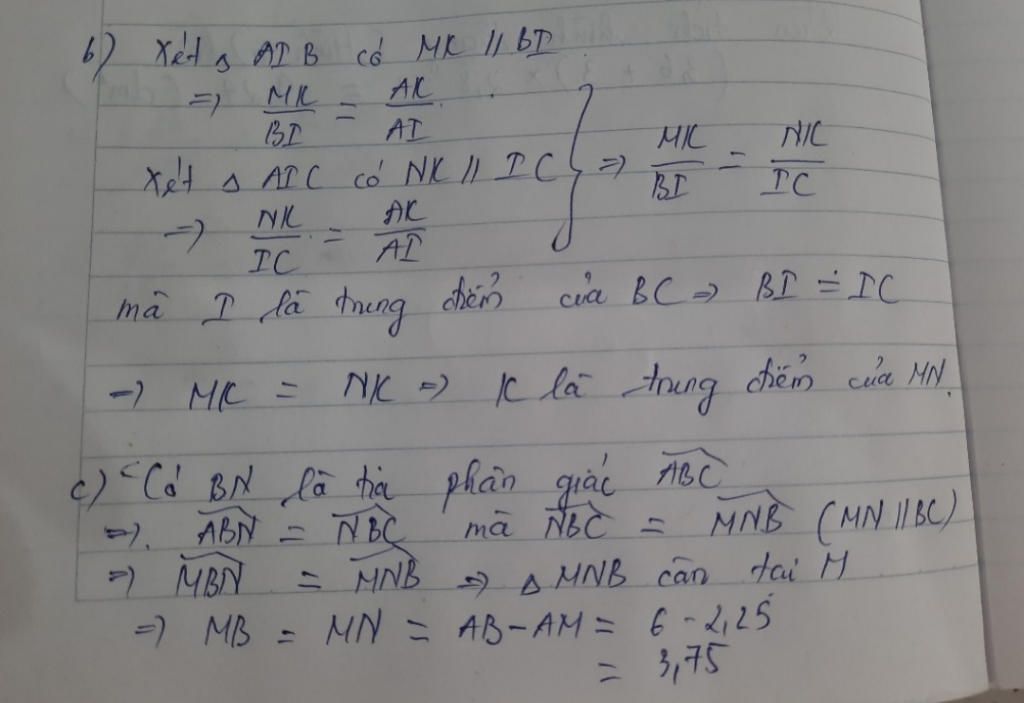 b) Xét △ AIB có MK // BI
=> MK/BI = AK/AI
Xét △ AIC có NK // IC } => MK/BI = NK/IC
=> NK/IC = AK/AI
mà I là trung điểm của BC => BI = IC
=> MK = NK => K là trung điểm của MN.
c) Có BN là tia phân giác ABC
=>. ABN = NBC mà NBC = MNB (MN // BC)
=> MBN = MNB => △ MNB cân tai M
=> MB = MN = AB - AM = 6 - 2,25
= 3,75